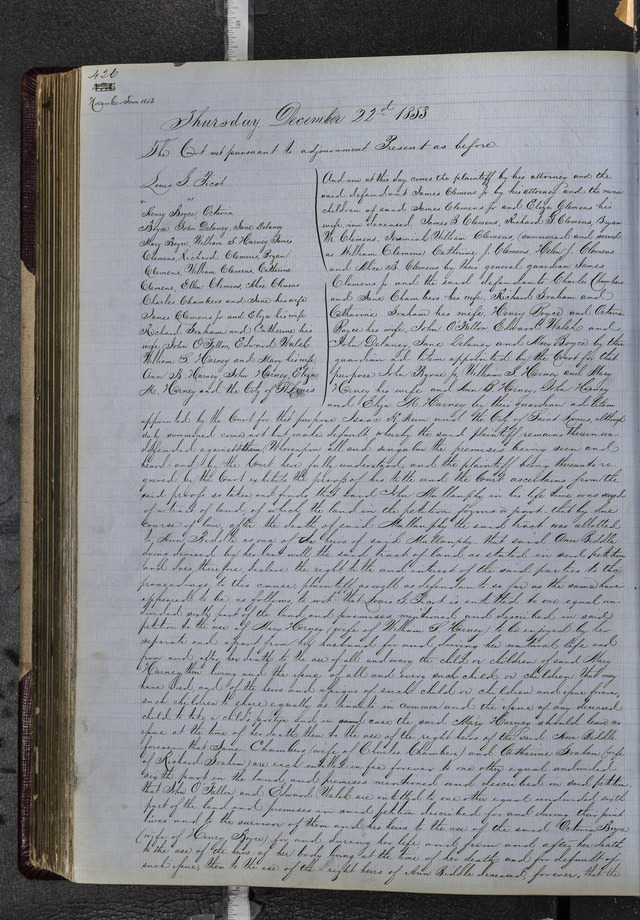 426
November Term 1853
Thursday December 22nd 1853
The Court met pursuant to adjournment Present as before
Louis G Picot
vs
Henry Boyce Octavia
Boyce John Delaney Jane Delaney
Mary Boyce William S Harney James
Clemens, Richard Clemens, Bryan
Clemens, William Clemens, Catherine
Clemens, Ellen Clemens Alice Clemens
Charles Chambers and Jane his wife
James Clemens Jr and Eliza his wife
Richard Graham and Catherine his
wife, John O'Fallon, Edward Walsh
William S Harney and Mary his wife,
Ann B Harney, John Harney, Eliza
M. Harney and the City of St Louis
And now at this day comes the plaintiff by his attorney and the
said defendants James Clemens Jr by his attorney and the minor
children of said James Clemens Jr and Eliza Clemens his
wife now deceased, James B Clemens, Richard G Clemens, Bryan
M. Clemens, Jeremiah William Clemens (summoned and sued
as William Clemens) Catherine J. Clemens, Helen J. Clemens
and Alice B. Clemens by their general guardian James
Clemens Jr and the said defendants Charles Chambers
and Jane Chambers his wife, Richard Graham and
Catharine Graham his wife, Henry Boyce and Octavia
Boyce his wife, John O'Fallon Edward Walsh and
John Delaney, Jane Delaney and Mary Boyce by their
guardian ad litem appointed by the Court for that
purpose John Byrne Jr William S Harney and Mary
Harney his wife and Ann B Harney John Harney
and Eliza M. Harney by their guardian ad litem
appointed by the Court for that purpose Isaac H. and the City of Saint Louis, although
duly summoned come not but make default whereby the said plaintiff remains therein un
defended against them Whereupon all and singular the premises being seen and
heard and by the Court here fully understood and the plaintiff being thereunto re
quired by the Court exhibits the proofs of his title and the Court ascertains from the
said proofs so taken and finds that John Mullanphy in his life time was seized
of a tract of land, of which the land in the petition forms a part that by due
course of law, after the death of said Mullanphy the said tract was allotted
to Ann Biddle as one of the heirs of said Mullanphy that said Ann Biddle
dying devised by her last will, the said tract of land, as stated in said petition
and does therefore, declare the right title and interest of the said parties to the
proceedings to this cause, plaintiff as well as defendants so far as the same have
appeared to be as follows, to wit, that Louis G Picot is entitled to one equal un
divided sixth part of the land and premises, mentioned and described in said
petition to the use of Mary Harney (wife of William S. Harney) to be enjoyed by her
separate and apart from her husband for and during her natural life and
from and after her death to the use of all and every the child or children of said Mary
Harney then living and the issue of all and every such child or children that may
have died and of the heirs and assigns of such child or children and issue forever
such children to share equally as tenants in common and the issue of any deceased
child to take a child's portion and in case the said Mary Harney should leave no
issue at the time of her death then to the use of the right heirs of the said Ann Biddle
forever that Jane Chambers (wife of Charles Chambers) and Catherine Graham (wife
of Richard Graham) are each entitled in fee forever to one other equal undivided
sixth part in the land and premises mentioned and described in said petition
that John O'Fallon and Edward Walsh are entitled to one other equal undivided sixth
part of the land and premises in said petition described for and during their joint
lives and to the survivor of them and his heirs to the use of the said Octavia Boyce
(wife of Henry Boyce) for and during her life and from and after her death
to the use of the heirs of her body living at the time of her death, and for default of
such issue, then to the use of the right heirs of Ann Biddle deceased, forever. that the